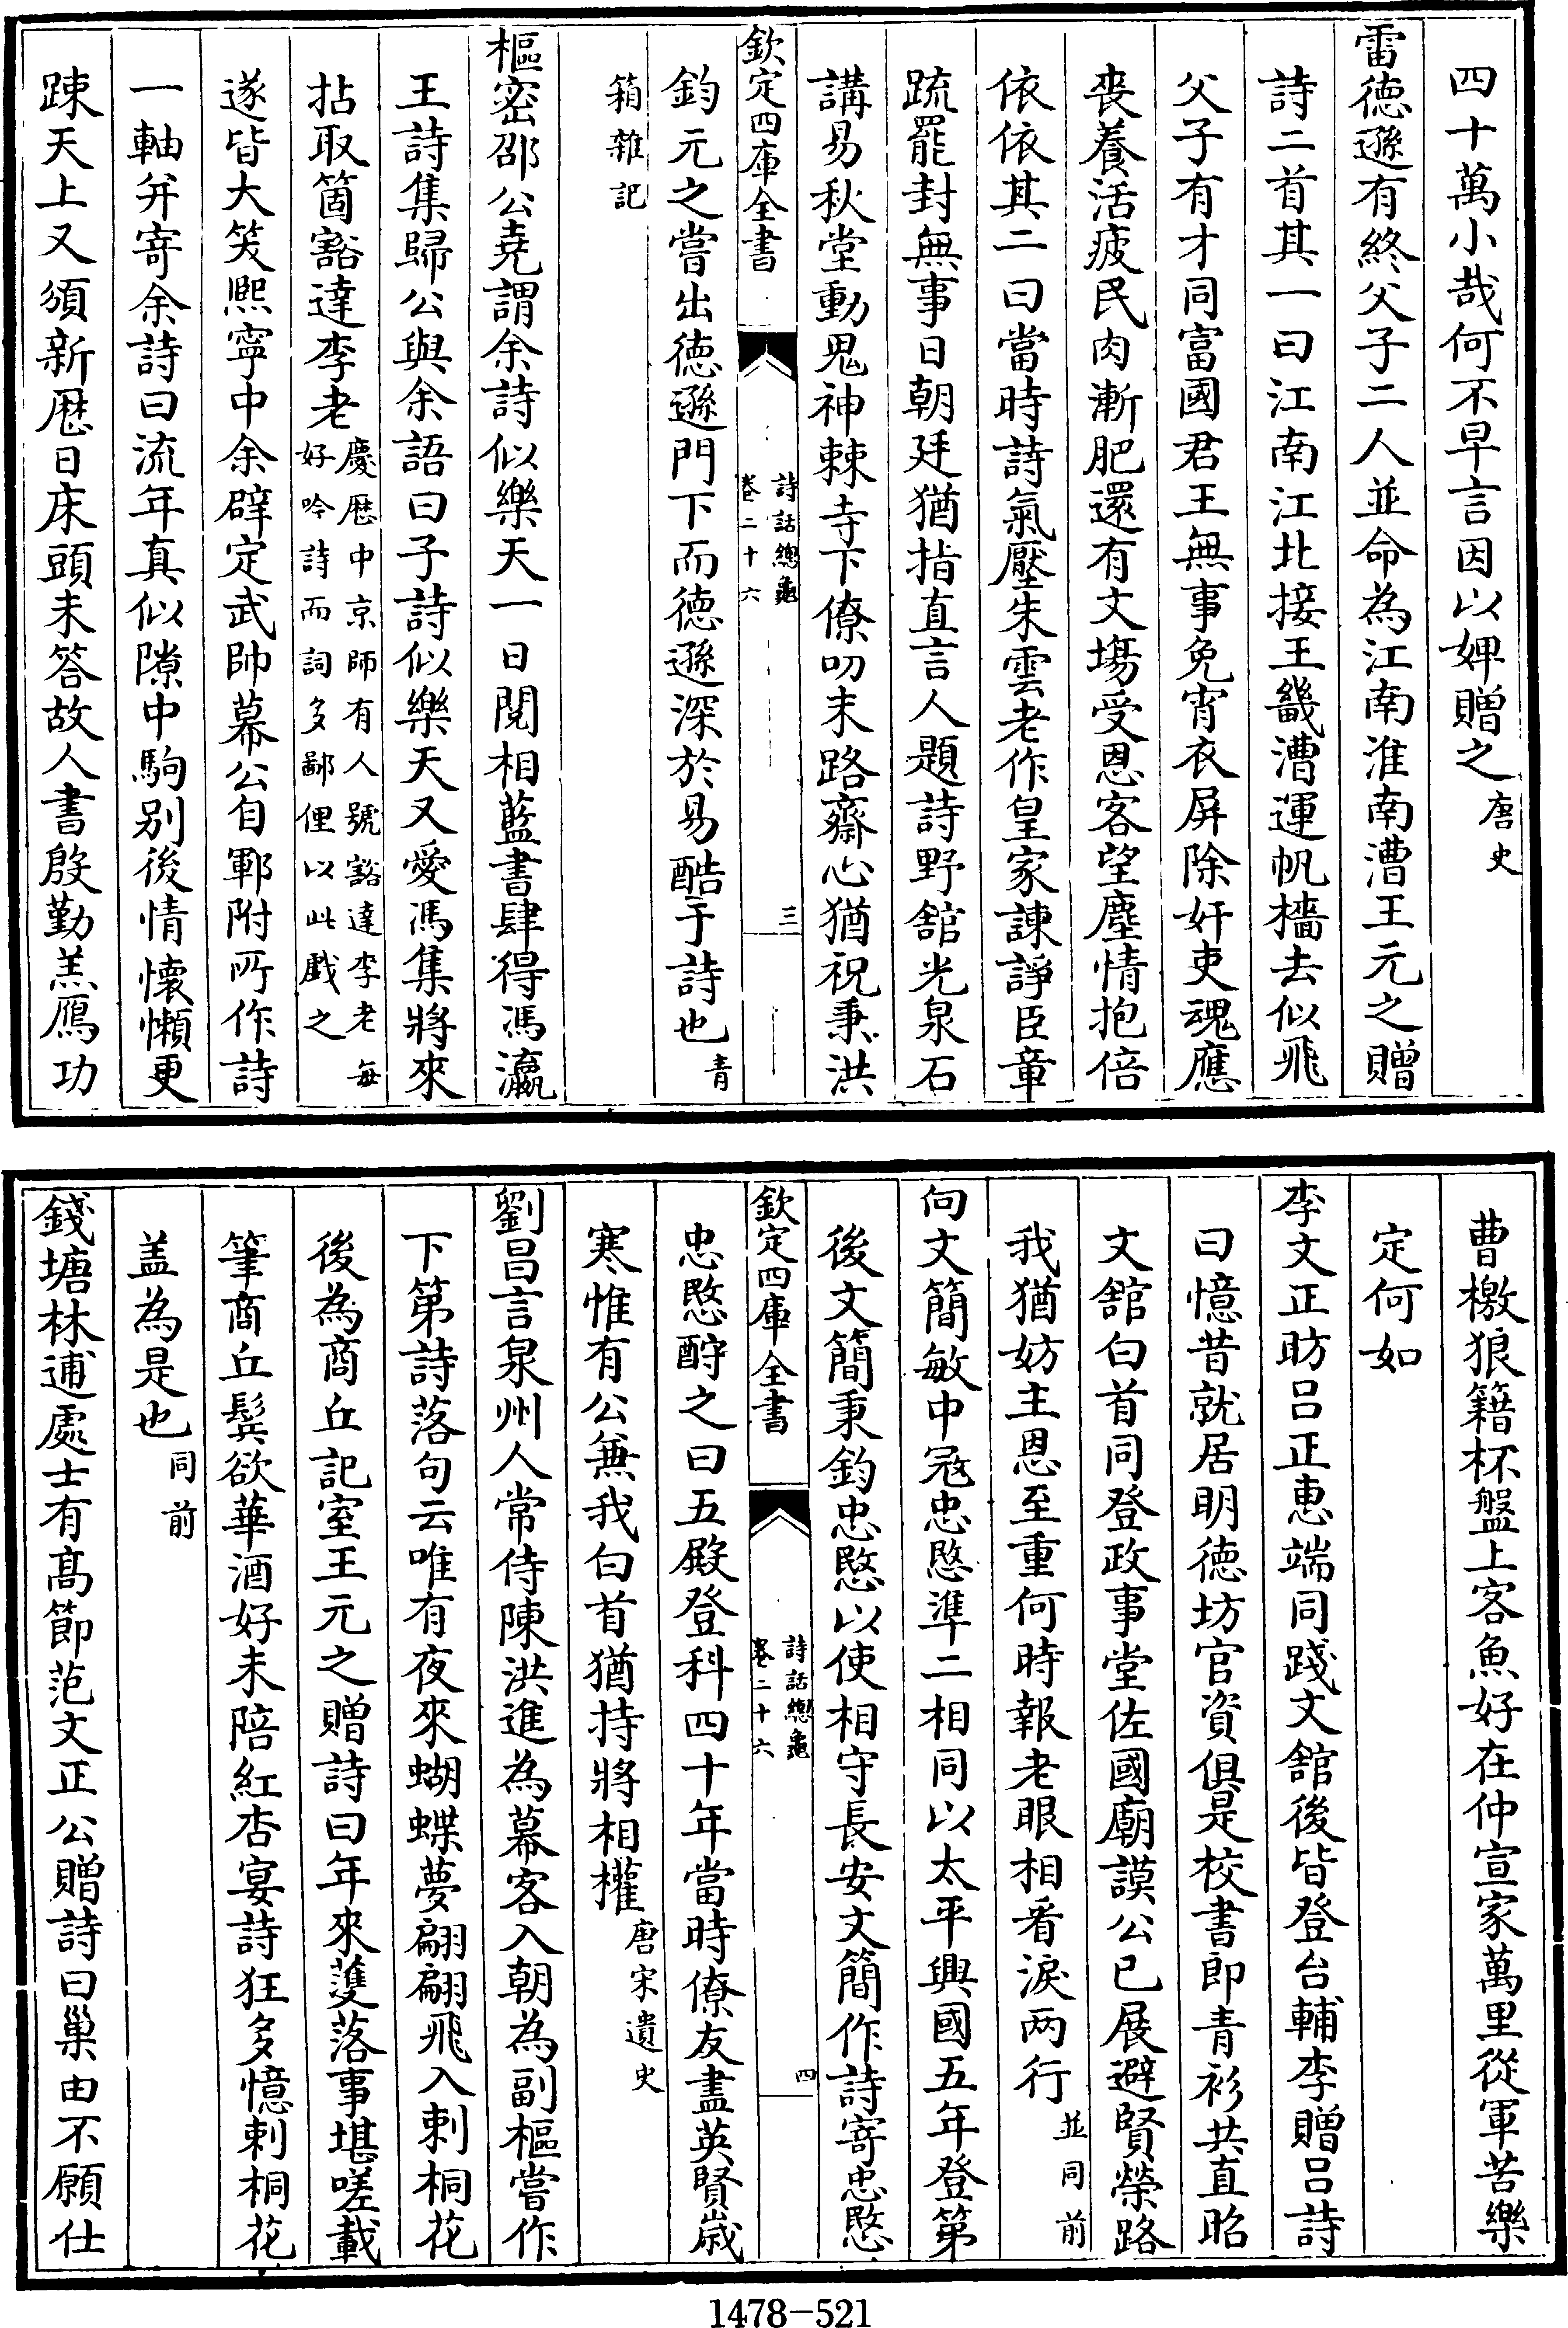 四十萬小哉何不早言因以婢贈之唐史
雷德遜有終父子二人並命為江南淮南漕王元之贈
詩二首其一曰江南江北接王畿漕運帆檣去似飛
父子有才同富國君王無事免宵衣屏除奸吏魂應
喪養活疲民肉漸肥還有文塲受恩客望塵情抱倍
依依其二曰當時詩氣壓朱雲老作皇家諫諍臣章
疏罷封無事日朝廷猶指直言人題詩野舘光泉石
講易秋堂動鬼神棘寺下僚叨末路齋心猶祝秉洪
欽定四庫全書 詩話總龜 卷二十六 三
鈞元之嘗出德遜門下而德遜深於易酷于詩也青
箱雜記
樞密邵公堯謂余詩似樂天一日閱相藍書肆得馮瀛
王詩集歸公與余語曰子詩似樂天又愛馮集將來
拈取箇豁達李老慶厯中京師有人號豁達李老每好吟詩而詞多鄙俚以此戯之
遂皆大笑熙寧中余辟定武帥幕公自鄆附所作詩
一軸并寄余詩曰流年真似隙中駒别後情懷懶更
踈天上又頒新厯日床頭未答故人書殷勤羔鴈功
曹檄狼籍杯盤上客魚好在仲宣家萬里從軍苦樂
定何如
李文正昉吕正惠端同踐文舘後皆登台輔李贈吕詩
曰憶昔就居明德坊官資俱是校書郎青衫共直昭
文舘白首同登政事堂佐國廟謨公已展避賢榮路
我猶妨主恩至重何時報老眼相看淚两行並同前
向文簡敏中冦忠愍凖二相同以太平興國五年登第
後文簡秉鈞忠愍以使相守長安文簡作詩寄忠愍
欽定四庫全書 詩話總龜 卷二十六 四
忠愍酧之曰五殿登科四十年當時僚友盡英賢嵗
寒惟有公兼我白首猶持將相權唐宋遺史
劉昌言泉州人常侍陳洪進為幕客入朝為副樞嘗作
下第詩落句云唯有夜來蝴蝶夢翩翩飛入刺桐花
後為商丘記室王元之贈詩曰年來蘧落事堪嗟載
筆商丘鬂欲華酒好未陪紅杏宴詩狂多憶刺桐花
盖為是也同前
錢塘林逋處士有髙節范文正公贈詩曰巢由不願仕
1478-521